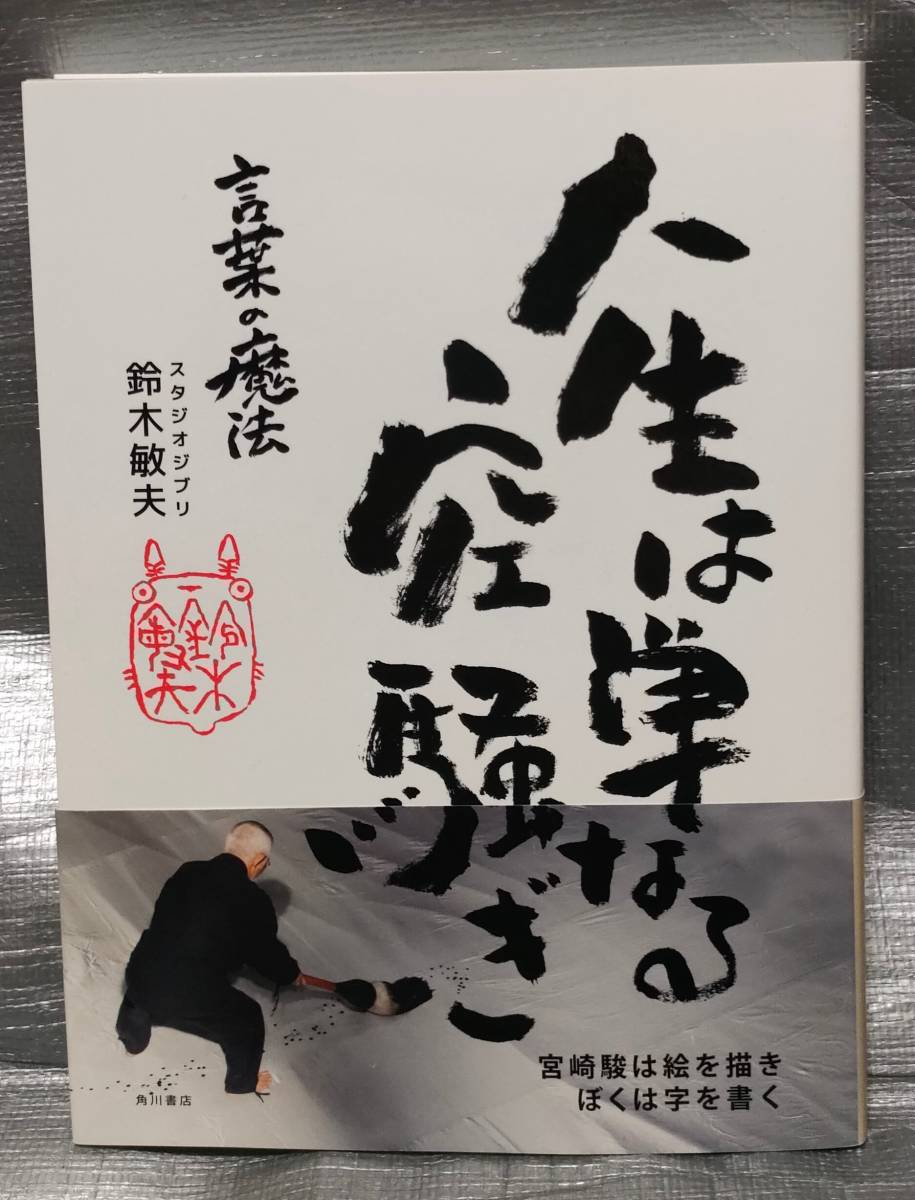 人生は単なる
空騒ぎ
言葉の魔法
スタジオジブリ
鈴木敏夫
鈴木
敏夫
宮崎駿は絵を描き
ぼくは字を書く
角川書店